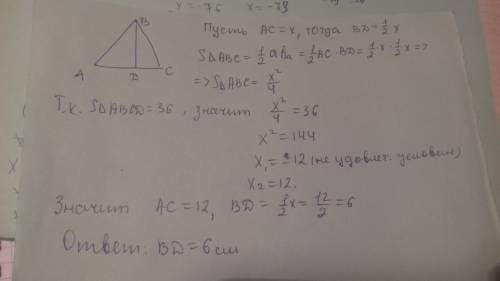 x = -76 x = -79
B
A
D
C
Пусть AC = x, тогда BD = 1/2 x
S△ABC = 1/2 aha = 1/2 AC · BD = 1/2 · x · 1/2 x =>
=> S△ABC = x²/4
Т.к. S△ABCD = 36, значит x²/4 = 36
x² = 144
x₁ = -12 (не удовлет. условию)
x₂ = 12.
Значит AC = 12, BD = 1/2 x = 12/2 = 6
Ответ: BD = 6 см